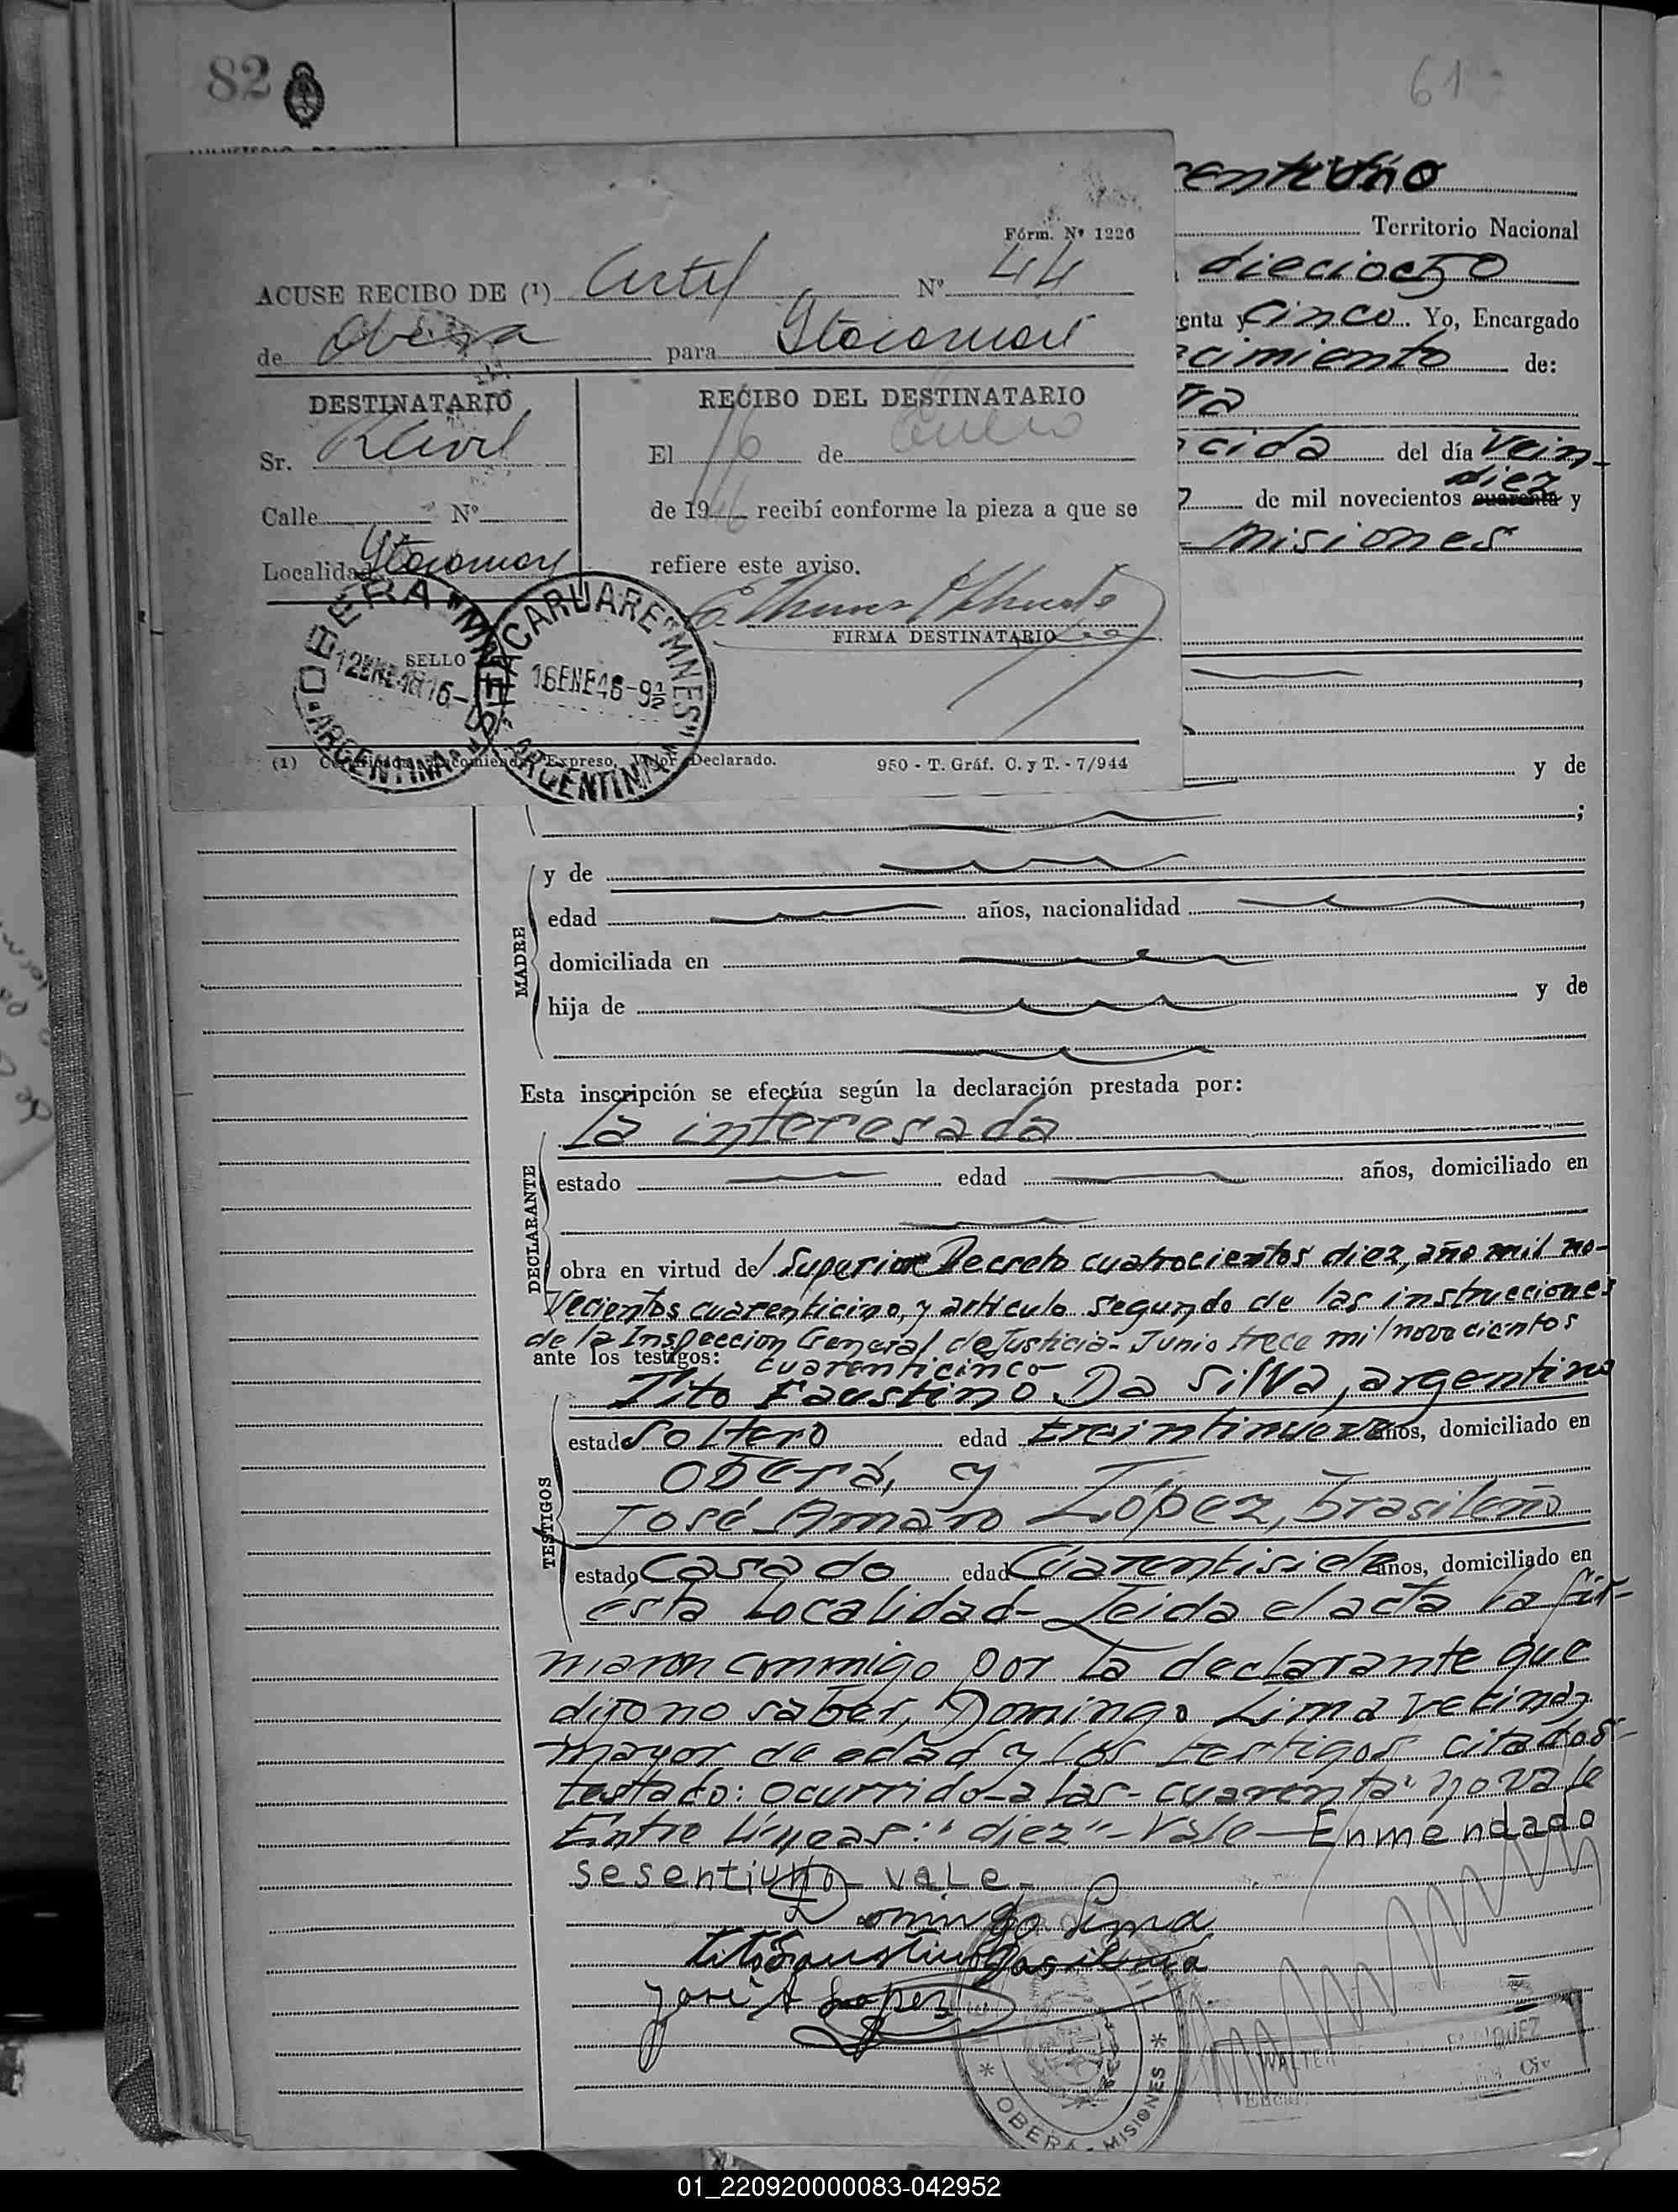 82
61
Fórm. Nº 1226
ACUSE RECIBO DE (1) Nº 44
de Oberá para Itacaruaré
DESTINATARIO
RECIBO DEL DESTINATARIO
Sr. R Civil
El 16 de Enero
Calle Nº
de 1946 recibí conforme la pieza a que se
Localidad
refiere este aviso.
FIRMA DESTINATARIO
SELLO
OBERA "MNES" ARGENTINA
12ENE46 16-
ITACARUARE "MNES" ARGENTINA
16ENE46-9½
(1) Expreso, Valor Declarado.
950 - T. Gráf. C. y T. - 7/944
Territorio Nacional
dieciocho
enta y cinco. Yo, Encargado
cimiento de:
ra
cida del día vein-
diez
de mil novecientos cuarenta y
Misiones
y de
;
y de
MADRE
edad años, nacionalidad ,
domiciliada en
hija de y de
Esta inscripción se efectúa según la declaración prestada por:
la interesada
DECLARANTE
estado edad años, domiciliado en
obra en virtud del Superior Decreto cuatrocientos diez, año mil no-
vecientos cuarenticinco, y artículo segundo de las instrucciones
de la Inspeccion General de Justicia - Junio trece mil novecientos
ante los testigos: cuarenticinco
Tito Faustino Da Silva, argentino
TESTIGOS
estado soltero edad treintinueve años, domiciliado en
Oberá, y
José Amaro López, brasileño
estado casado edad cuarentisiete años, domiciliado en
esta localidad - Leida el acta la fir-
maron conmigo por la declarante que
dijo no saber, Domingo Lima vecino,
mayor de edad y los testigos citados-
testado: ocurrido-a las-cuarenta" no vale
Entre líneas: "diez" - Vale - Enmendado
sesentiuno - vale.-
Domingo Lima
Tito Faustino Da Silva
José A Lopez
OBERA - MISIONES
WALTER